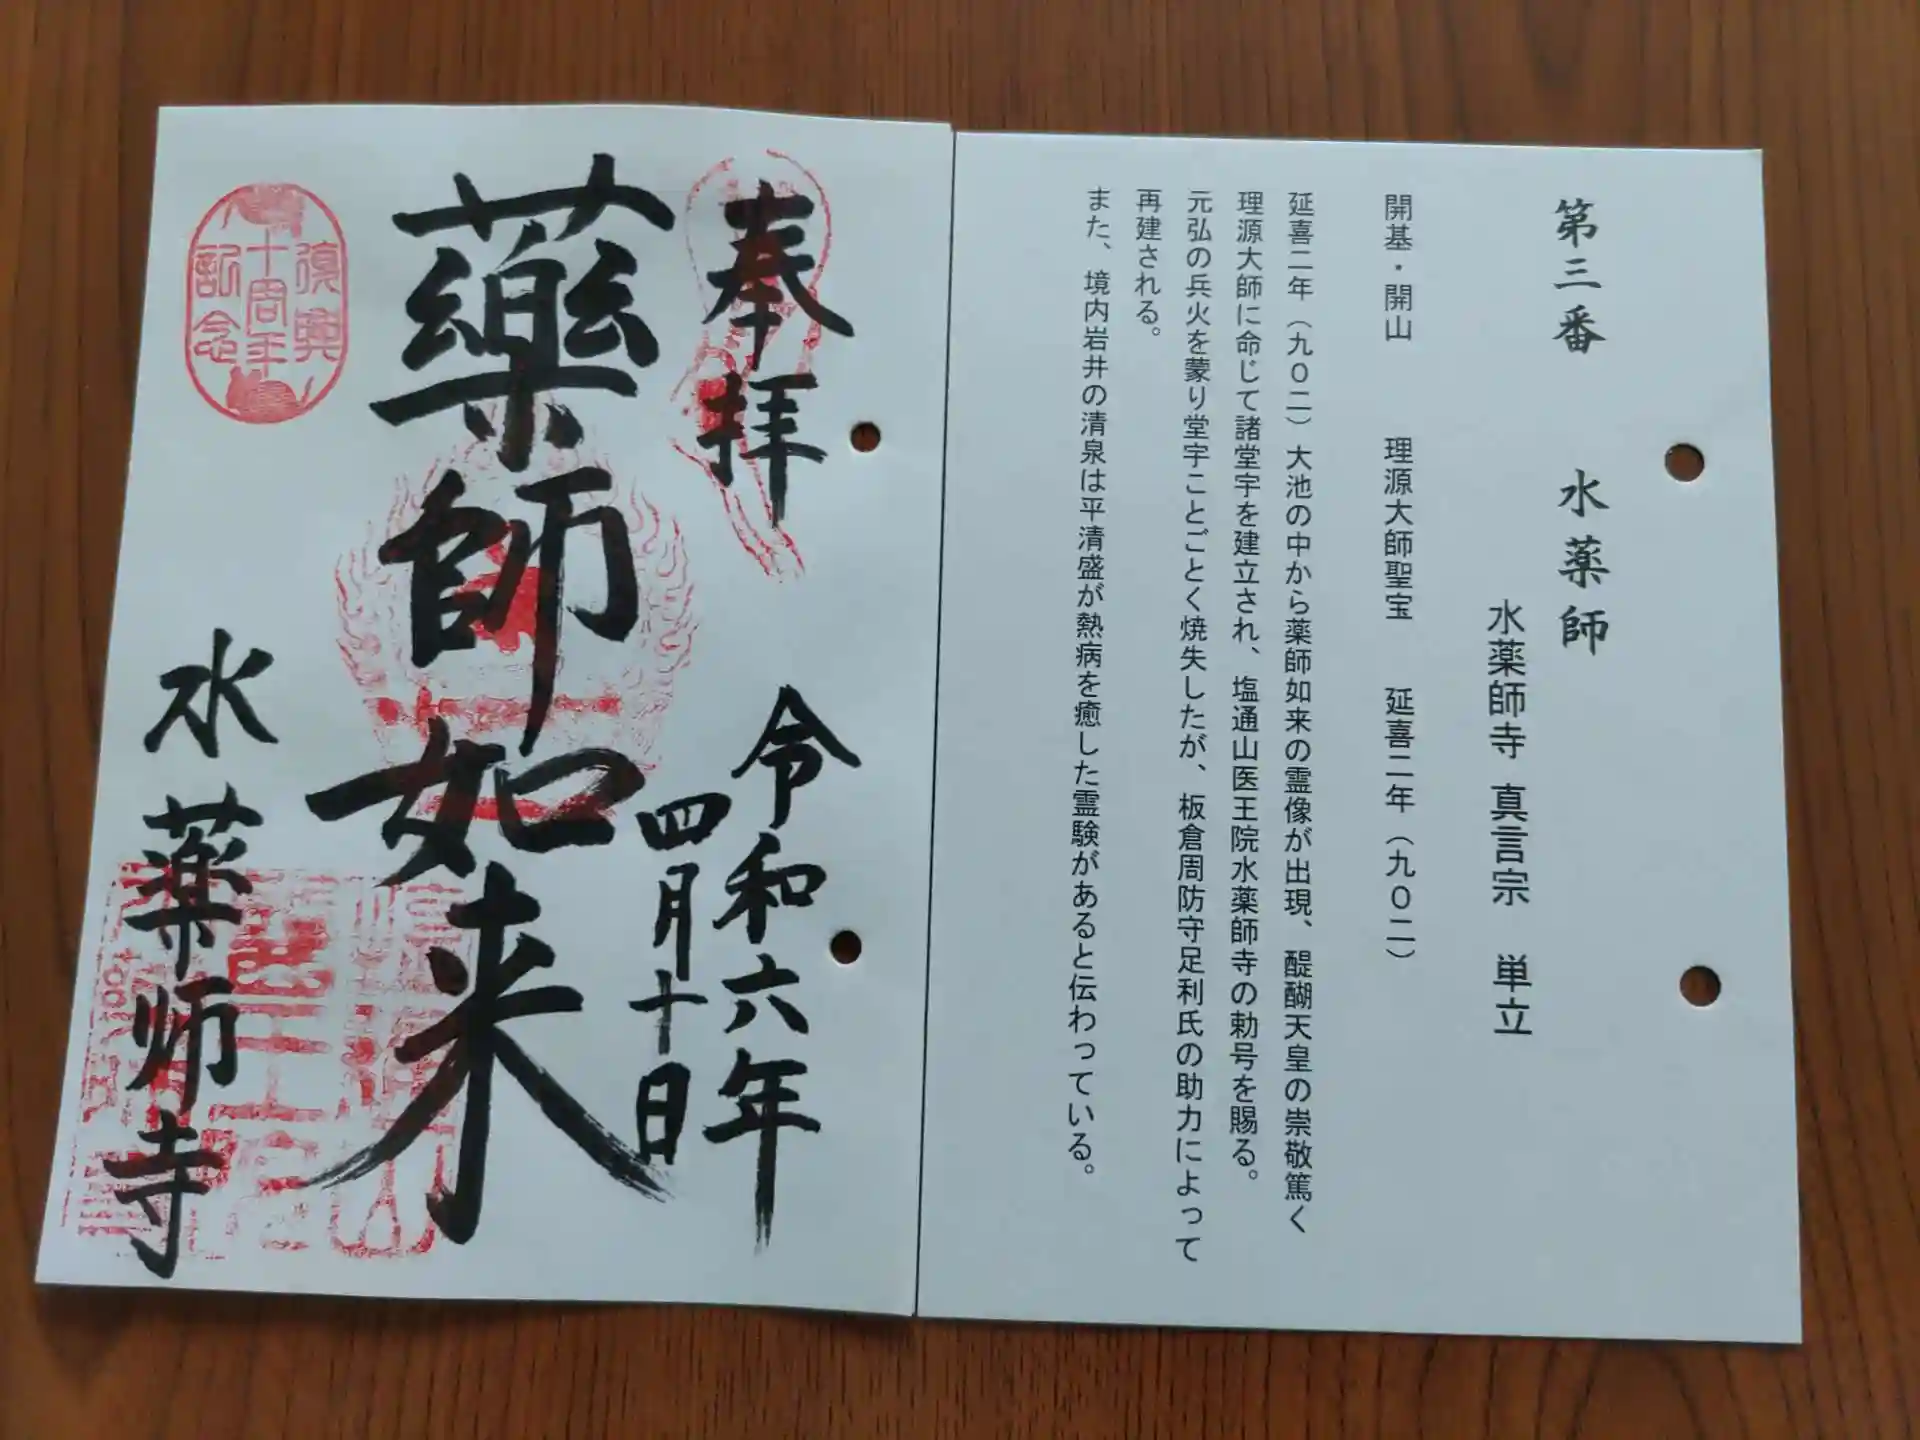 第三番　水薬師
水薬師寺 真言宗　単立
開基・開山　理源大師聖宝　延喜二年（九〇二）
延喜二年（九〇二）大池の中から薬師如来の霊像が出現、醍醐天皇の崇敬篤く
理源大師に命じて諸堂宇を建立され、塩通山医王院水薬師寺の勅号を賜る。
元弘の兵火を蒙り堂宇ことごとく焼失したが、板倉周防守足利氏の助力によって
再建される。
また、境内岩井の清泉は平清盛が熱病を癒した霊験があると伝わっている。
奉拝
令和六年
四月十日
薬師如来
水薬师寺
復興
十周年
記念